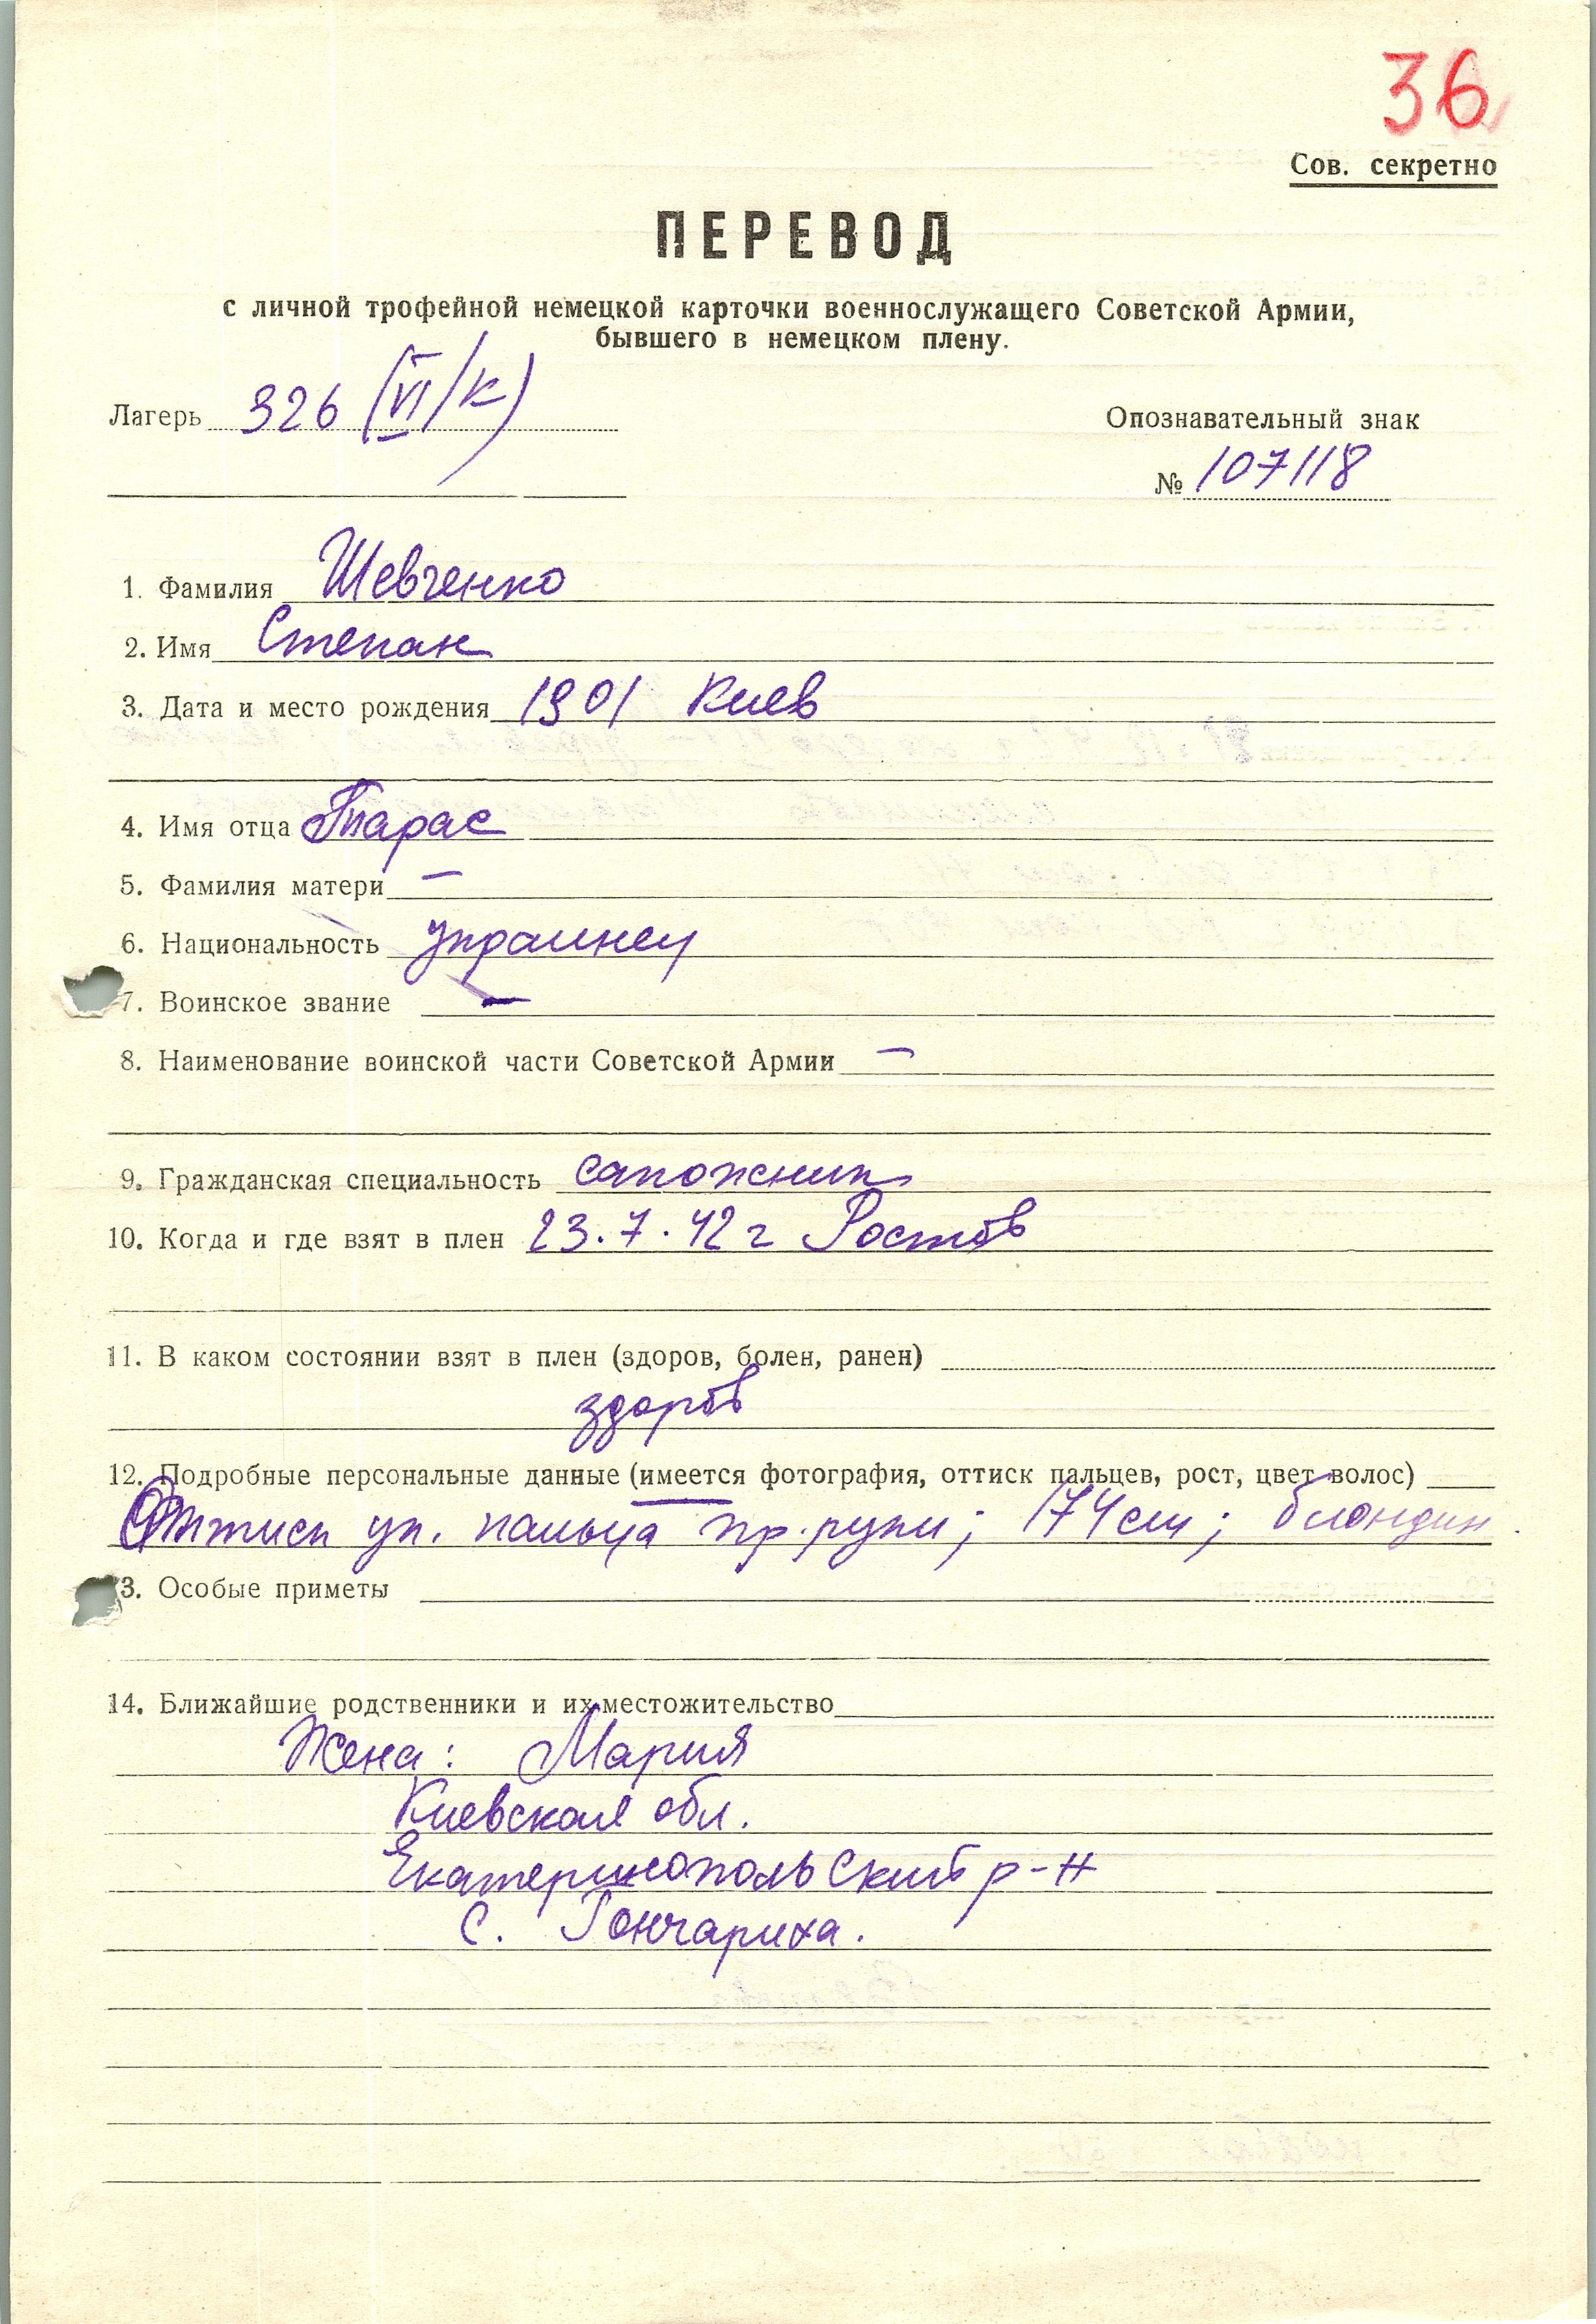 36
Сов. секретно
ПЕРЕВОД
с личной трофейной немецкой карточки военнослужащего Советской Армии,
бывшего в немецком плену.
Лагерь 326 (VI/К)
Опознавательный знак
№ 107118
1. Фамилия Шевченко
2. Имя Степан
3. Дата и место рождения 1901 Киев
4. Имя отца Тарас
5. Фамилия матери —
6. Национальность украинец
7. Воинское звание —
8. Наименование воинской части Советской Армии —
9. Гражданская специальность сапожник
10. Когда и где взят в плен 23.7.42 г Ростов
11. В каком состоянии взят в плен (здоров, болен, ранен)
здоров
12. Подробные персональные данные (имеется фотография, оттиск пальцев, рост, цвет волос)
Оттиск ук. пальца пр. руки; 174 см; блондин
3. Особые приметы
14. Ближайшие родственники и их местожительство
Жена: Мария
Киевская обл.
Екатеринопольский р-н
с. Гончариха.